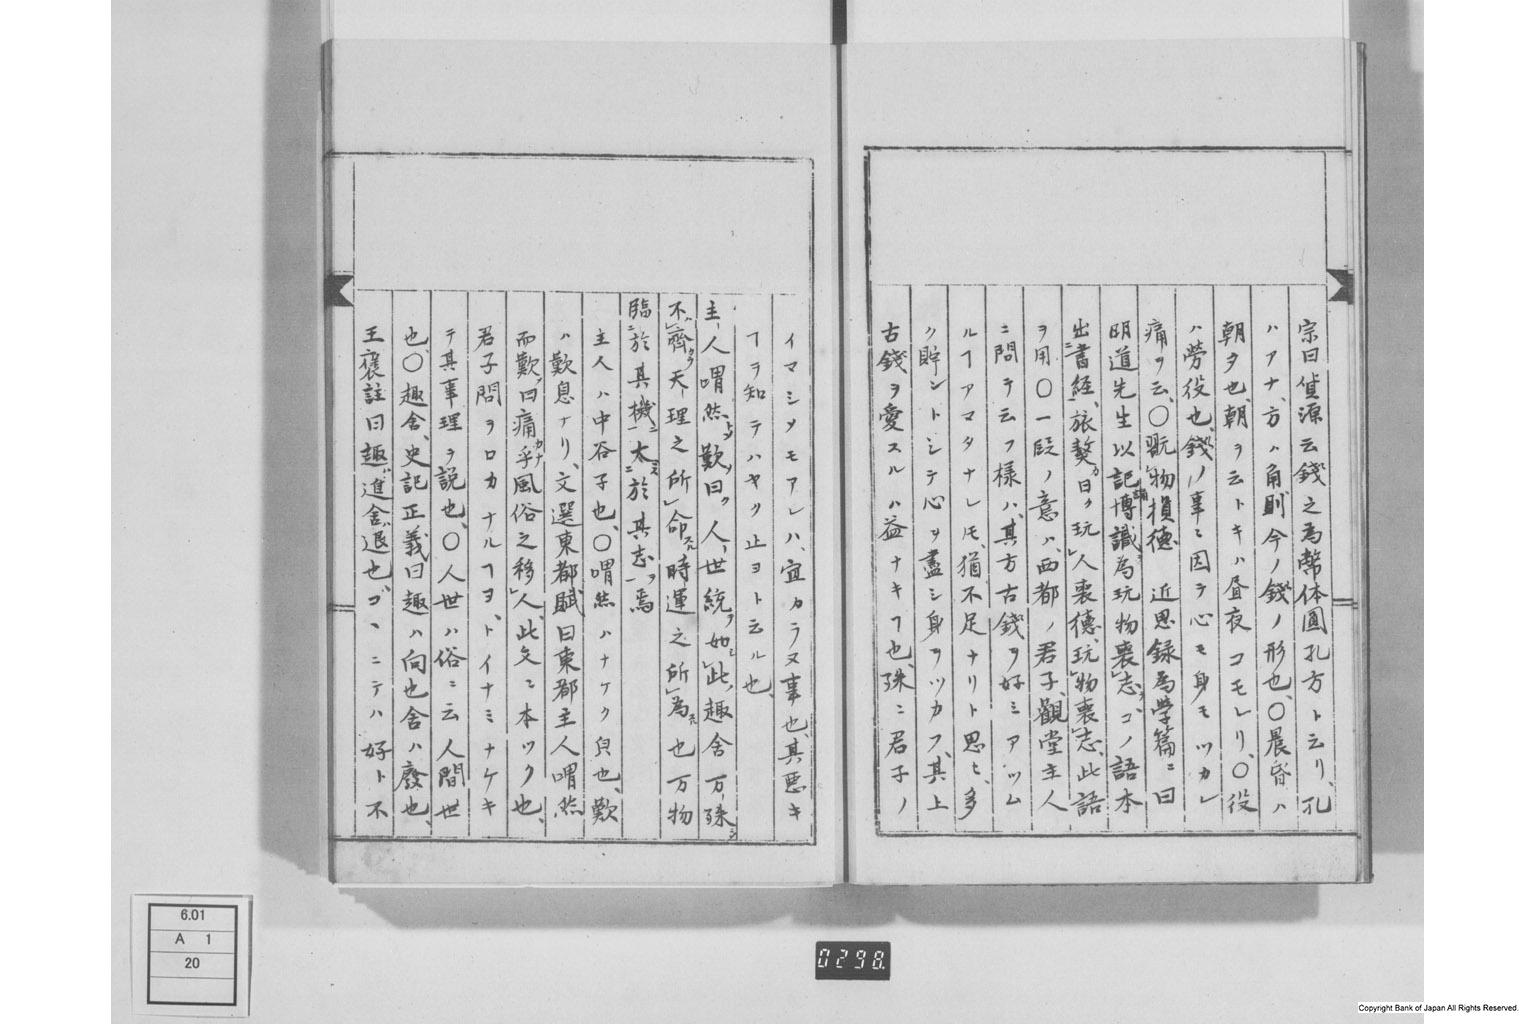 宗曰貨源云錢之為幣体圓孔方ト云リ、孔
ハアナ、方ハ角則今ノ錢ノ形也、〇晨昏ハ
朝夕也、朝ヲ云トキハ昼夜コモレリ、〇役
ハ勞役也、錢ノ事ニ因テ心モ身モツカレ
痛ヲ云、〇翫物損德 近思録為学篇ニ曰
明道先生以記誦博識為玩物喪志、コノ語本
出書経、旅獒曰ク玩人喪德、玩物喪志、此語
ヲ用〇一段ノ意ハ、西都ノ君子、觀堂主人
ニ問テ云フ樣ハ、其方古錢ヲ好ミアツム
ルヿアマタナレ𪜈、猶不足ナリト思ヒ、多
ク貯ントシテ心ヲ盡シ身ヲツカフ、其上
古錢ヲ愛スルハ益ナキヿ也、殊ニ君子ノ
イマシメモアレハ、宜カラヌ事也、其悪キ
ヿヲ知テハヤク止ヨト云ル也、
主人喟然歎曰ク人世統如此趣舎万殊
不齊天理之所命時運之所為也万物
臨於其機太於其志焉
主人ハ中谷子也、〇喟然ハナケク皃也、歎
ハ歎息ナリ、文選東都賦曰東都主人喟然
而歎曰痛乎風俗之移人、此文ニ本ツク也、
君子問ヲロカナルヿヨ、トイナミナケキ
テ其事理ヲ説也、〇人世ハ俗ニ云人間世
也、〇趣舎、史記正義曰趣ハ向也舎ハ廢也、
王褒註曰趣進舎退也、コヽニテハ好ト不
6.01
A 1
20
0298.
Copyright Bank of Japan All Rights Reserved.